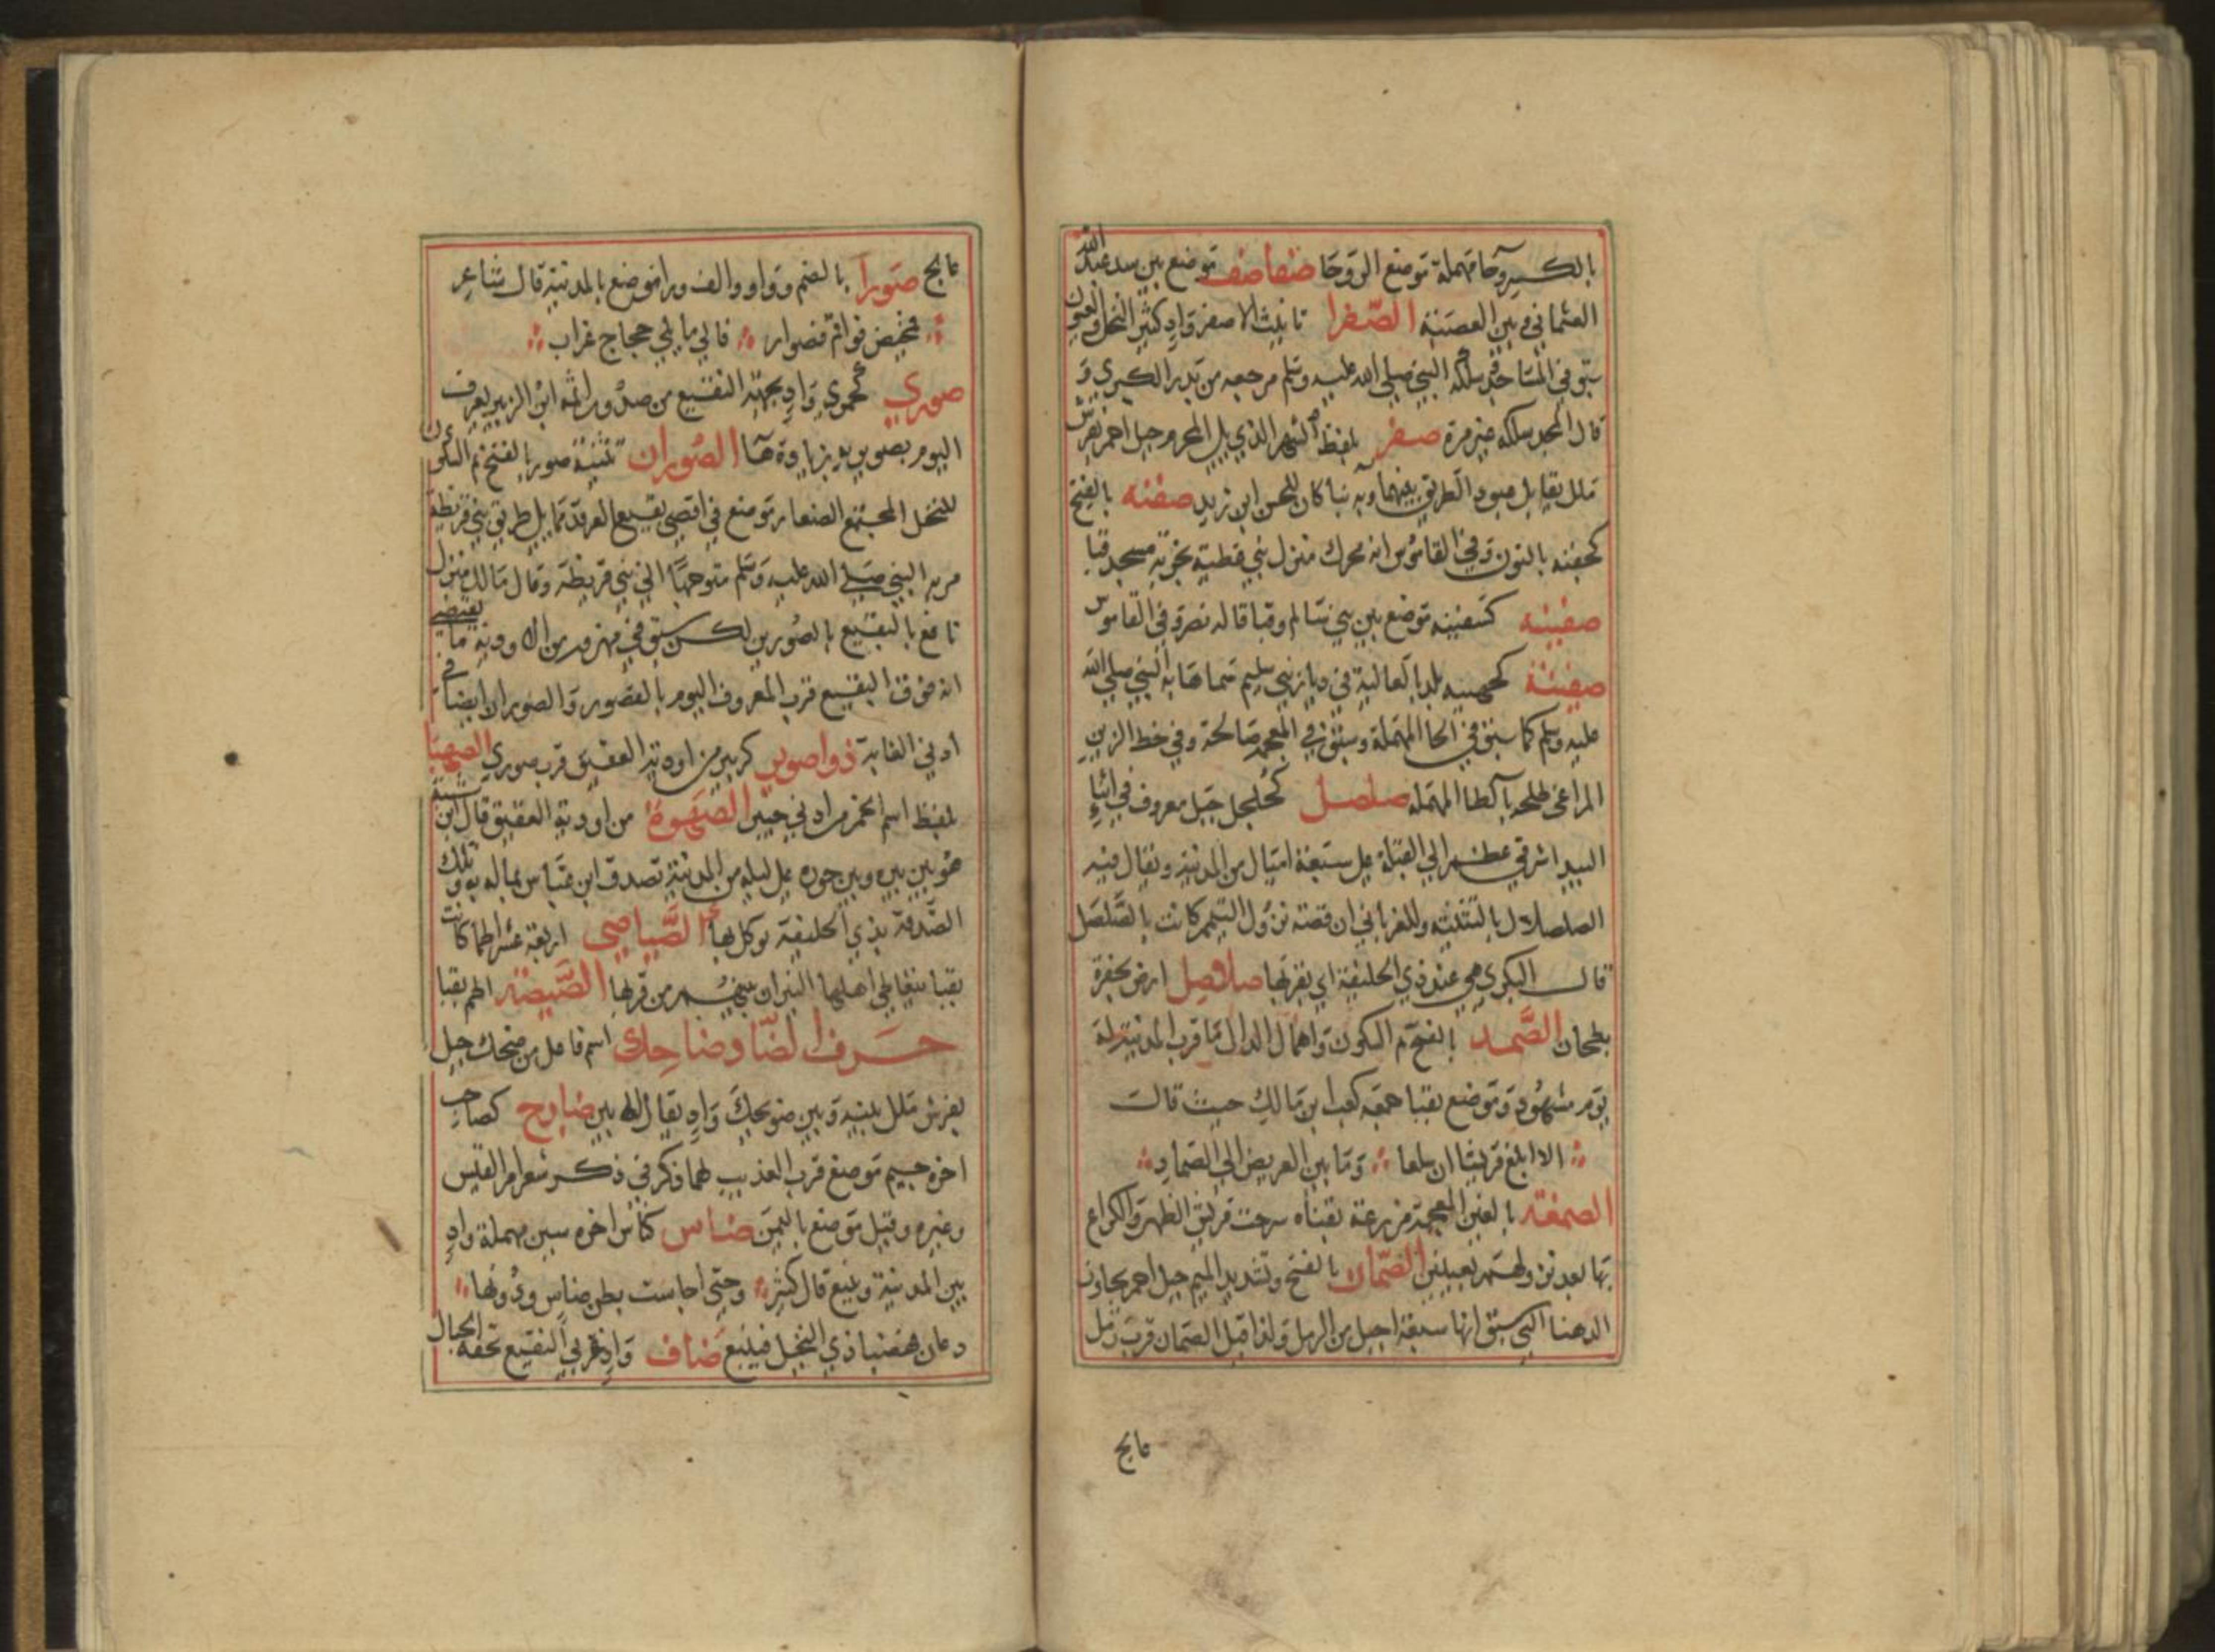 بالكسر وحا مهملة موضع الروحا صفاصف موضع بين سد عبد الله
العثماني وبين العصبة الصفرا تانيث الاصفر واد كثير النخل والعيون
سبق في المساجد سلكه النبي صلى الله عليه وسلم مرجعه من بدر الكبرى و
قال المجد سلكه غير مرة صفر بلفظ الشهر الذي يلي المحرم وجبل احمر بفرش
ملل يقابل عبود الطريق بينهما وبه بنا كان للحسن ابن زيد صفنه بالفتح
كجفنه بالنون وفي القاموس انه محرك منزل بني عطية بحزبة مسجد قبا
صفينه كسفينه موضع بين بني سالم وقبا قاله نصر وفي القاموس
صفينة كجهينه بلد بالعالية في ديار بني سليم سماها به النبي صلى الله
عليه وسلم كما سبق في الحا المهملة وسبق في المعجم صالحة وفي خط الزين
المراغي طلحه بالطا المهمله صلصل كجلجل جبل معروف في اثناء
البيدا شرقي عظم الى القبلة على سبعة اميال من المدينة ويقال فيه
الصلصلال بالتثنيه وللمغرباني ان قصة نزول التيمم كانت بالصلصل
قال البكري هي عند ذي الحليفة اي بقربها صلاصل ارض بحفرة
بطحان الصمد بالفتح ثم السكون واهمال الدال ما قرب المدينة له
يوم مشهود وموضع بقبا جمعه كعب ابن مالك حيث قالت
الا ابلغ قريشا ان سلعا وما بين العريض الى الصماد
الصمغة بالغين المعجمة مزرعة بقناه سرحت قريش الظهر والكراع
بها بعد نزولهم بعينين الصمان بالفتح وتشديد الميم جبل احمر يجاور
الدهنا التي سبق انها سبعة اجبل من الرمل ولذا قيل الصمان قرب رمل
عالج
عالج صورا بالضم وواو والف ورا موضع بالمدينة قال شاعر
فمخيض فواقم فصوار فالي ما يلي حجاج غراب
صوري كجموي واد بجهة النقيع من صدور اثمة ابن الزبير يعرف
اليوم بصوريه بزيادة ها الصوران تثنية صور بالفتح ثم السكون
للنخل المجتمع الصغار موضع في اقصى بقيع الغرقد مما يلي طريق بني قريظة
مر به النبي صلى الله عليه وسلم متوجها الى بني قريظة وقال مالك منزل
نافع بالبقيع بالصورين لكن سبق في مهزور من الاودية ما يقتضي
انه فوق البقيع قرب المعروف اليوم بالقصور والصوران ايضا في
ادني الغابة ذواصوير كزبير من اودية العقيق قرب صوري الصهبا
بلفظ اسم الخمر من ادني خيبر الصهوة من اودية العقيق قال ابن شبة
هو بين بين وبين حوره على ليله من المدينة تصدق ابن عباس بماله به وتلك
الصدقه بذي الحليفة يوكل بها الصياصي اربعة عشر اطما كانت
بقبا يتعاطي اهلها النيران بينهم من قربها الصيصة اطم بقبا
حرف الضاد ضاحك اسم فاعل من ضحك جبل
بفرش ملل بينه وبين ضويحك واد يقال له بين ضارج كصاحب
اخره جيم موضع قرب العذيب لها ذكر في ذكر شعر امر القيس
وغيره وقيل موضع باليمن ضاس كفاس اخره سين مهملة واد
بين المدينة وينبع قال كثير وحتى اجازت بطن ضاس ودونها
دعان فهضبا ذي النجيل فينبع ضاف واد غربي النقيع تحفه الجبال